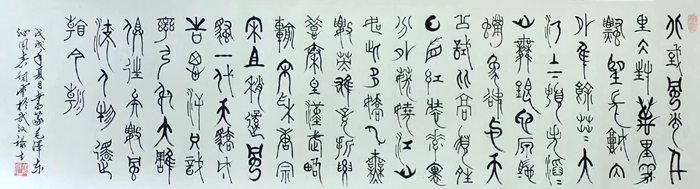 北國風光千
里冰封萬里雪
飄望長城內
外惟餘莽莽大
河上下頓失滔滔
山舞銀蛇原馳
蠟象欲與天
公試比高須晴
日看紅裝素裹
分外妖嬈江山
如此多嬌引無
數英雄競折腰
惜秦皇漢武略
輸文采唐宗
宋祖稍遜風
騷一代天驕成
吉思汗只識
彎弓射大雕
俱往矣數風
流人物還
看今朝
戊戌年夏月書篆毛澤東
沁園春詞於武漢